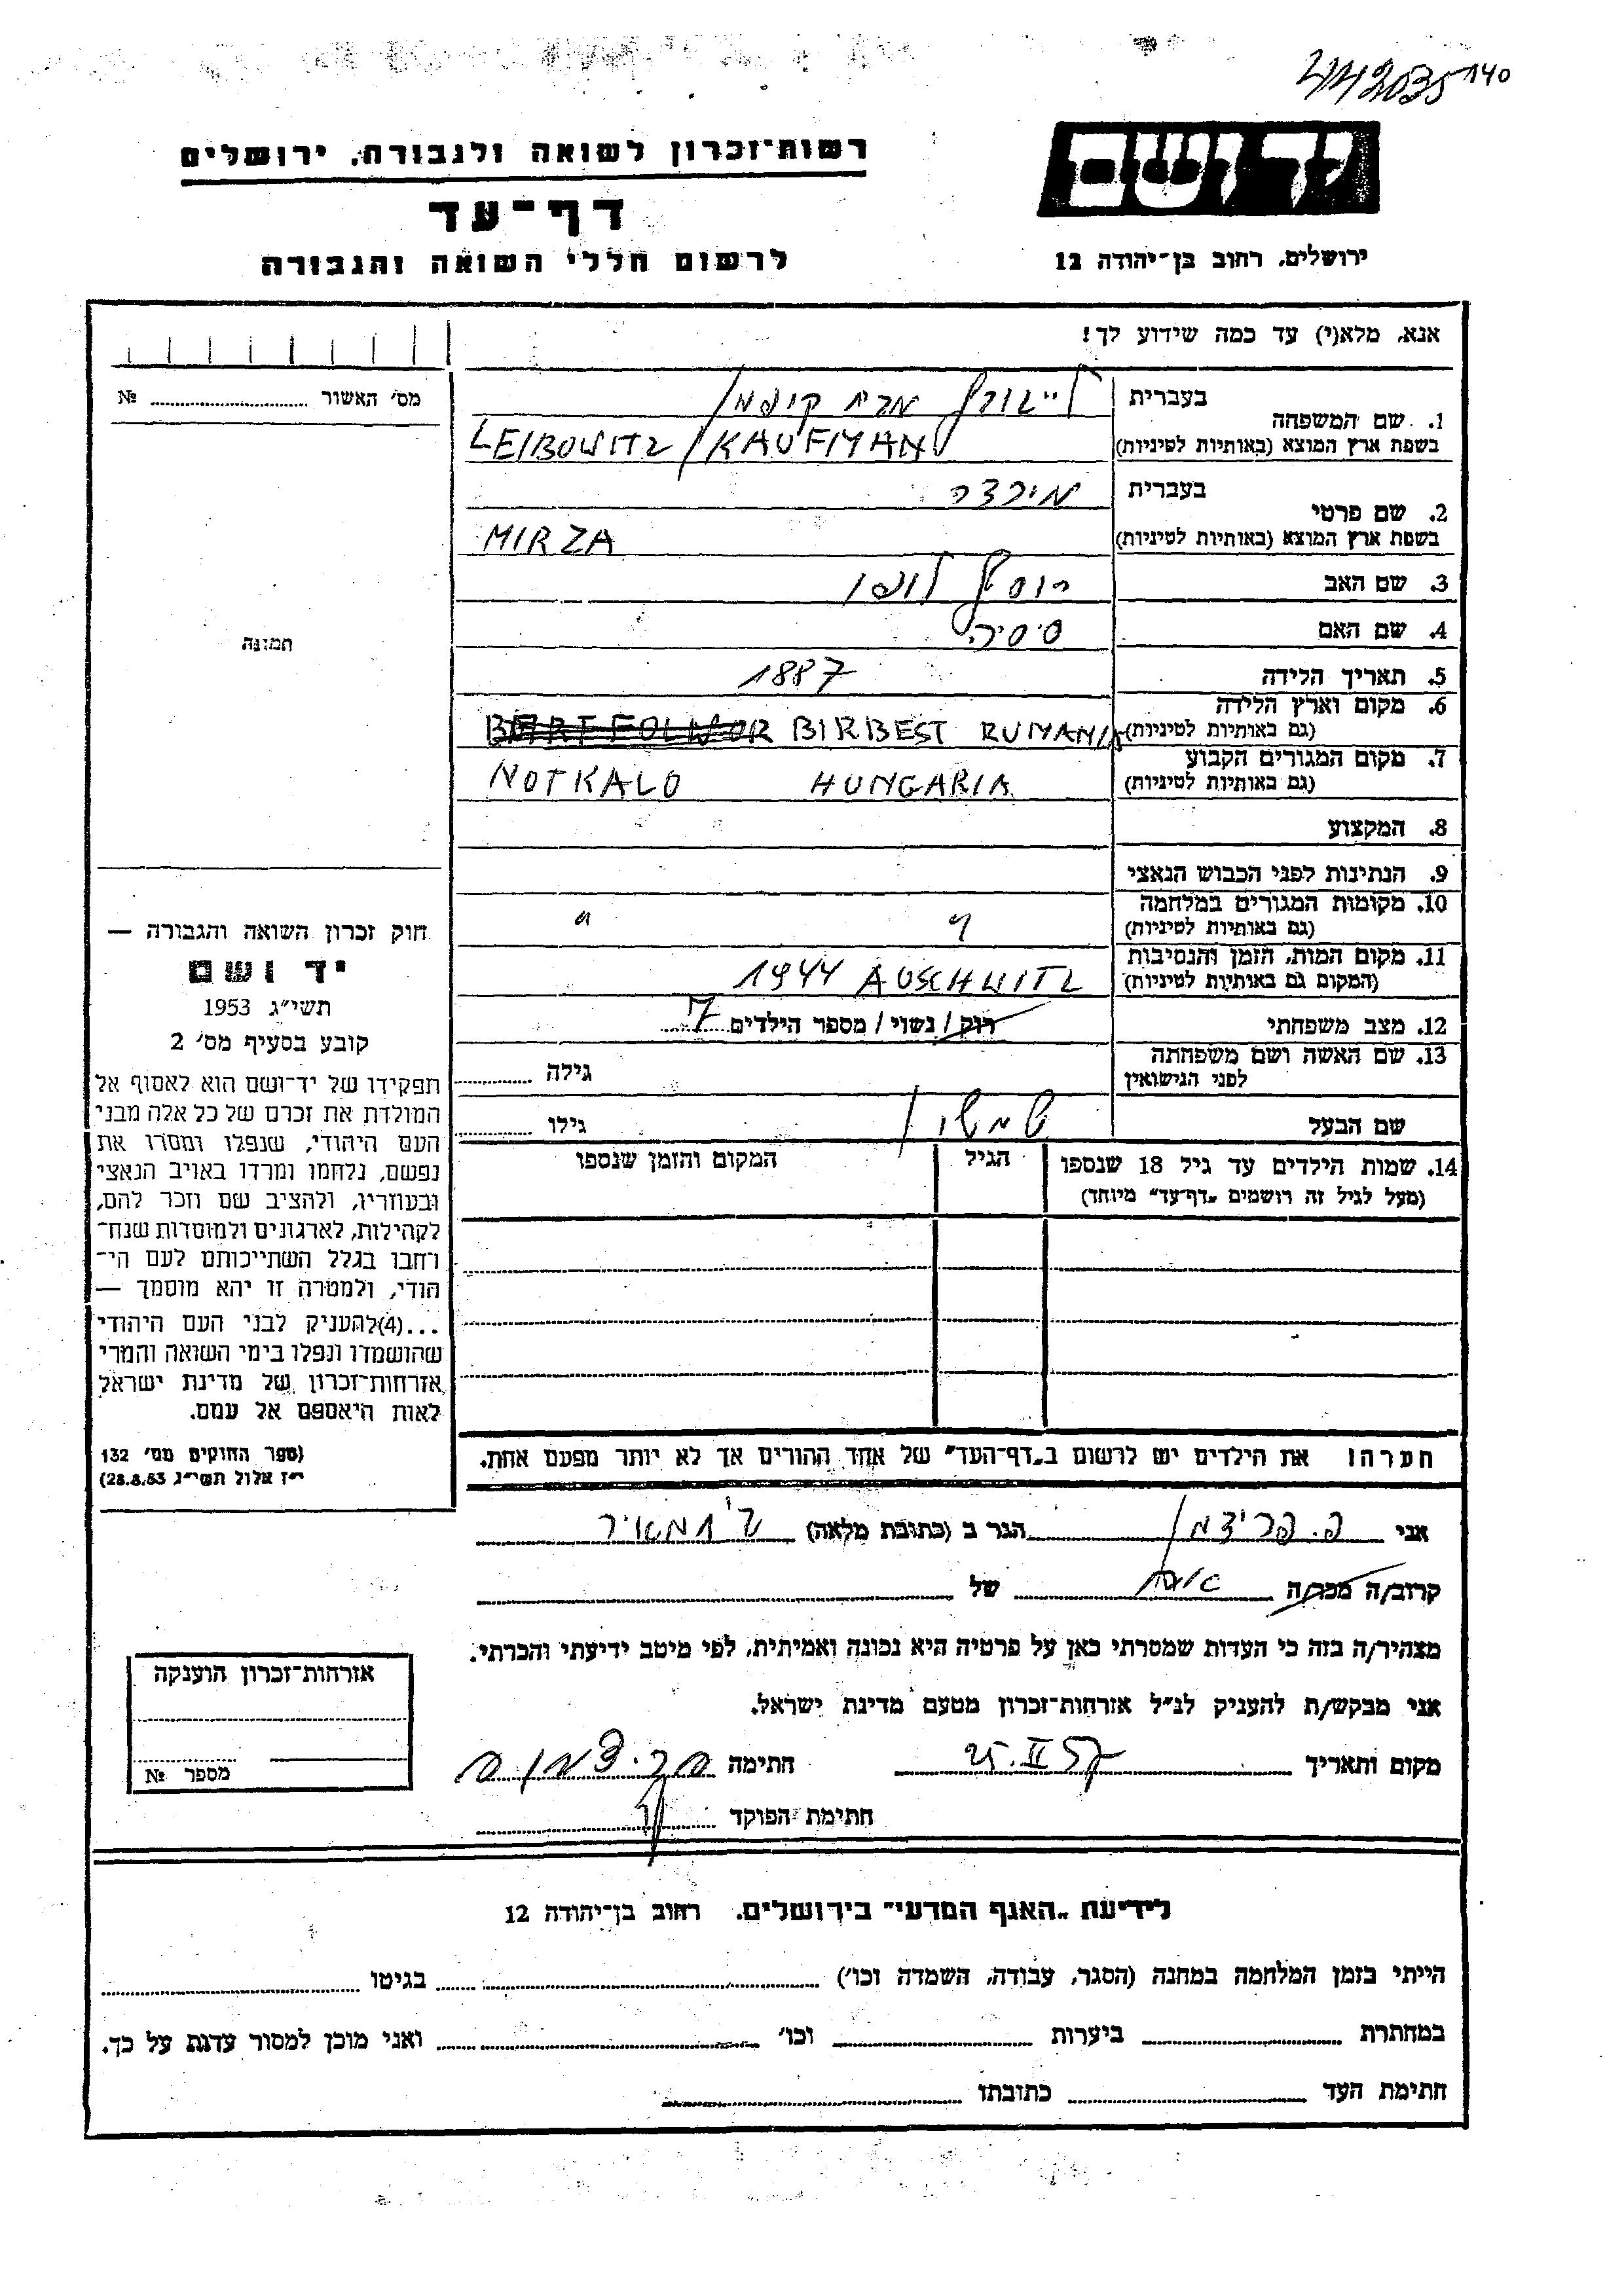 140
יד ושם
רשות־זכרון לשואה ולגבורה, ירושלים
דף־עד
לרשום חללי השואה והגבורה
ירושלים, רחוב בן־יהודה 12
אנא, מלא(י) עד כמה שידוע לך!
מס' האשור № ........
1. שם המשפחה
בעברית
בשפת ארץ המוצא (באותיות לטיניות)
LEIBOWITZ / KAUFMAN
2. שם פרטי
בעברית מירצה
בשפת ארץ המוצא (באותיות לטיניות)
MIRZA
3. שם האב יוסף
4. שם האם
תמונה
5. תאריך הלידה 1887
6. מקום וארץ הלידה
(גם באותיות לטיניות) BIRBEST RUMANIA
7. מקום המגורים הקבוע
(גם באותיות לטיניות) NOTKALO HUNGARIA
8. המקצוע
9. הנתינות לפני הכבוש הנאצי
10. מקומות המגורים במלחמה
(גם באותיות לטיניות) " "
11. מקום המות, הזמן והנסיבות
(המקום גם באותיות לטיניות) 1944 AUSCHWITZ
12. מצב משפחתי רוק / נשוי / מספר הילדים 7
13. שם האשה ושם משפחתה
לפני הנישואין
גילה ........
שם הבעל שמשון גילו ........
14. שמות הילדים עד גיל 18 שנספו
(מעל לגיל זה רושמים "דף־עד" מיוחד)
הגיל
המקום והזמן שנספו
חוק זכרון השואה והגבורה —
יד ושם
תשי"ג 1953
קובע בסעיף מס' 2
תפקידו של יד־ושם הוא לאסוף אל
המולדת את זכרם של כל אלה מבני
העם היהודי, שנפלו ומסרו את
נפשם, נלחמו ומרדו באויב הנאצי
ובעוזריו, ולהציב שם וזכר להם,
לקהילות, לארגונים ולמוסדות שנח־
רחבו בגלל השתייכותם לעם הי־
הודי, ולמטרה זו יהא מוסמך —
...(4)להעניק לבני העם היהודי
שהושמדו ונפלו בימי השואה והמרי
אזרחות־זכרון של מדינת ישראל
לאות היאספם אל עמם.
(ספר החוקים מס' 132
י"ז אלול תשי"ג 28.8.53)
הערה: את הילדים יש לרשום ב"דף־העד" של אחד ההורים אך לא יותר מפעם אחת.
אני פ. פרידמן הגר ב (כתובת מלאה)
קרוב/ה מכר/ה של
מצהיר/ה בזה כי העדות שמסרתי כאן על פרטיה היא נכונה ואמיתית, לפי מיטב ידיעתי והכרתי.
אני מבקש/ת להעניק לנ"ל אזרחות־זכרון מטעם מדינת ישראל.
מקום ותאריך 25.II 57 חתימה
חתימת הפוקד
אזרחות־זכרון הוענקה
מספר №
לידיעת "האגף המדעי" בירושלים, רחוב בן־יהודה 12
הייתי בזמן המלחמה במחנה (הסגר, עבודה, השמדה וכו') ........ בגיטו ........
במחתרת ........ ביערות ........ וכו' ........ ואני מוכן למסור עדות על כך.
חתימת העד ........ כתובתו ........